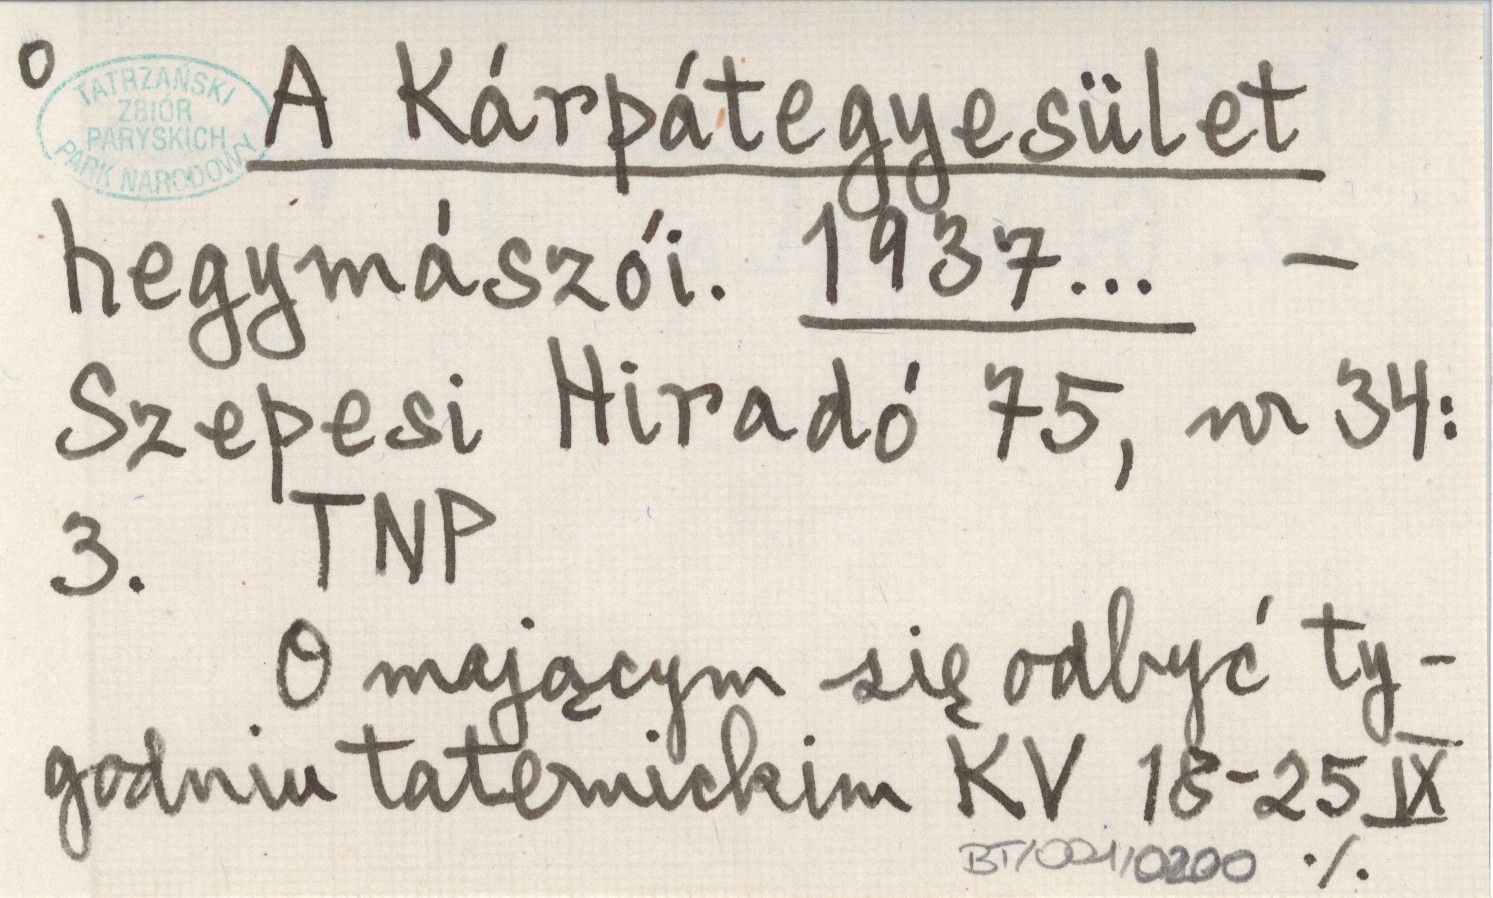 o
TATRZAŃSKI
ZBIÓR
PARYSKICH
PARK NARODOWY
A Kárpátegyesület
hegymászói. 1937... –
Szepesi Hiradó 75, nr 34:
3. TNP
O mającym się odbyć ty-
godniu taternickim KV 18-25 IX
BT/001/0200 ./.